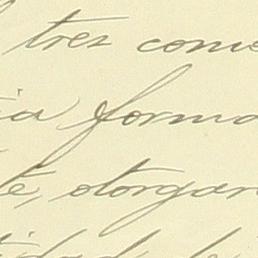 tres come
ia forma
te, otorgan